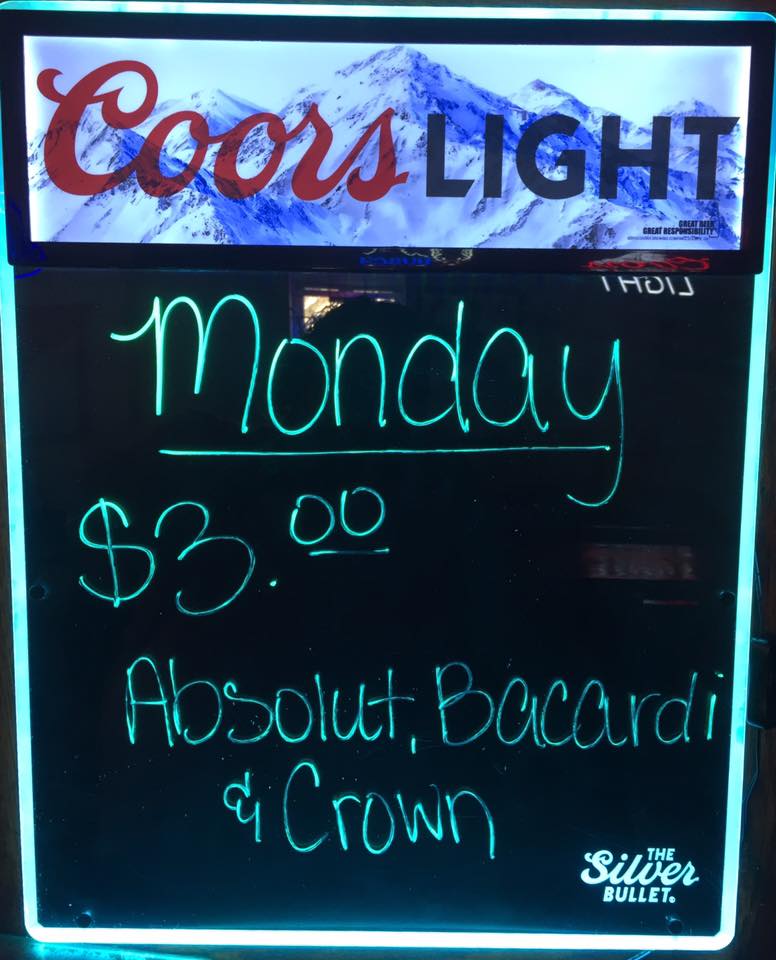 Coors LIGHT
GREAT BEER
GREAT RESPONSIBILITY
LIGHT
Monday
$3.00
Absolut, Bacardi
& Crown
THE
Silver
BULLET.